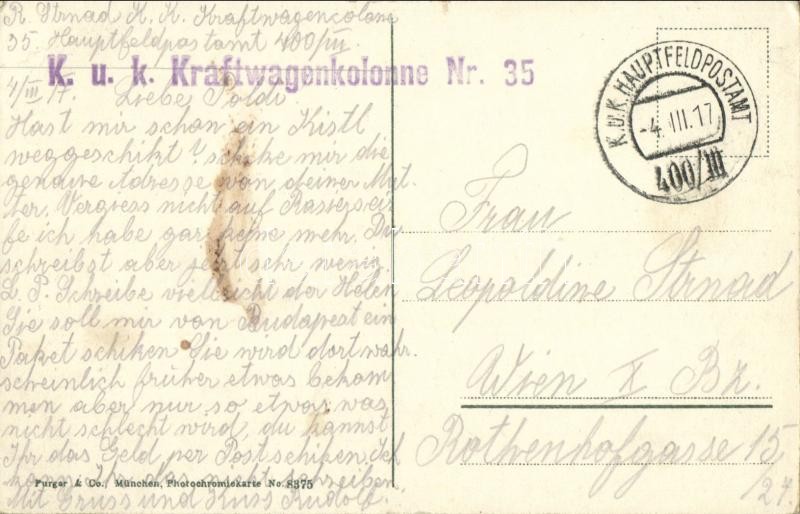 R. Strnad K. K. Kraftwagencolone
35. Hauptfeldpostamt 400/III
K. u. k. Kraftwagenkolonne Nr. 35
4/III 17. Liebe Poldi
Hast mir schon ein Kistl
weggeschikt? schike mir die
genaue Adresse von deiner Mut-
ter. Vergess nicht auf Rasiersei-
fe ich habe gar keine mehr. Du
schreibst aber jetzt sehr wenig
L. P. Schreibe vielleicht der Helen
Sie soll mir von Budapest ein
Paket schiken Sie wird dort wahr-
scheinlich früher etwas bekom
men aber nur so etwas was
nicht schlecht wird, du kannst
Ihr das Geld per Post schiken. Ich
kann Ihr das nicht schreiben
Mit Gruss und Kuss Rudolf.
Purger & Co., München, Photochromiekarte No. 8375
K.U.K. HAUPTFELDPOSTAMT
-4.III.17
400/III
Frau
Leopoldine Strnad
Wien X Bz.
Rothenhofgasse 15
/24.